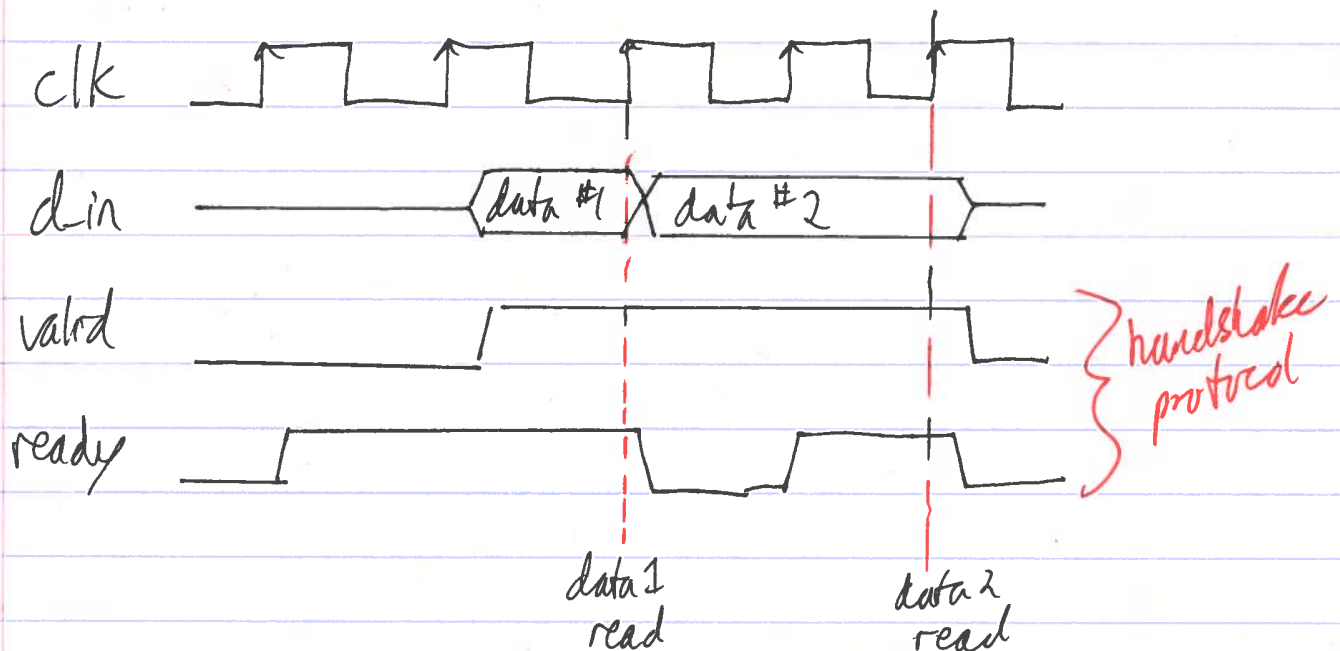 clk
d_in
data #1
data #2
valid
ready
handshake
protocol
data 1
read
data 2
read